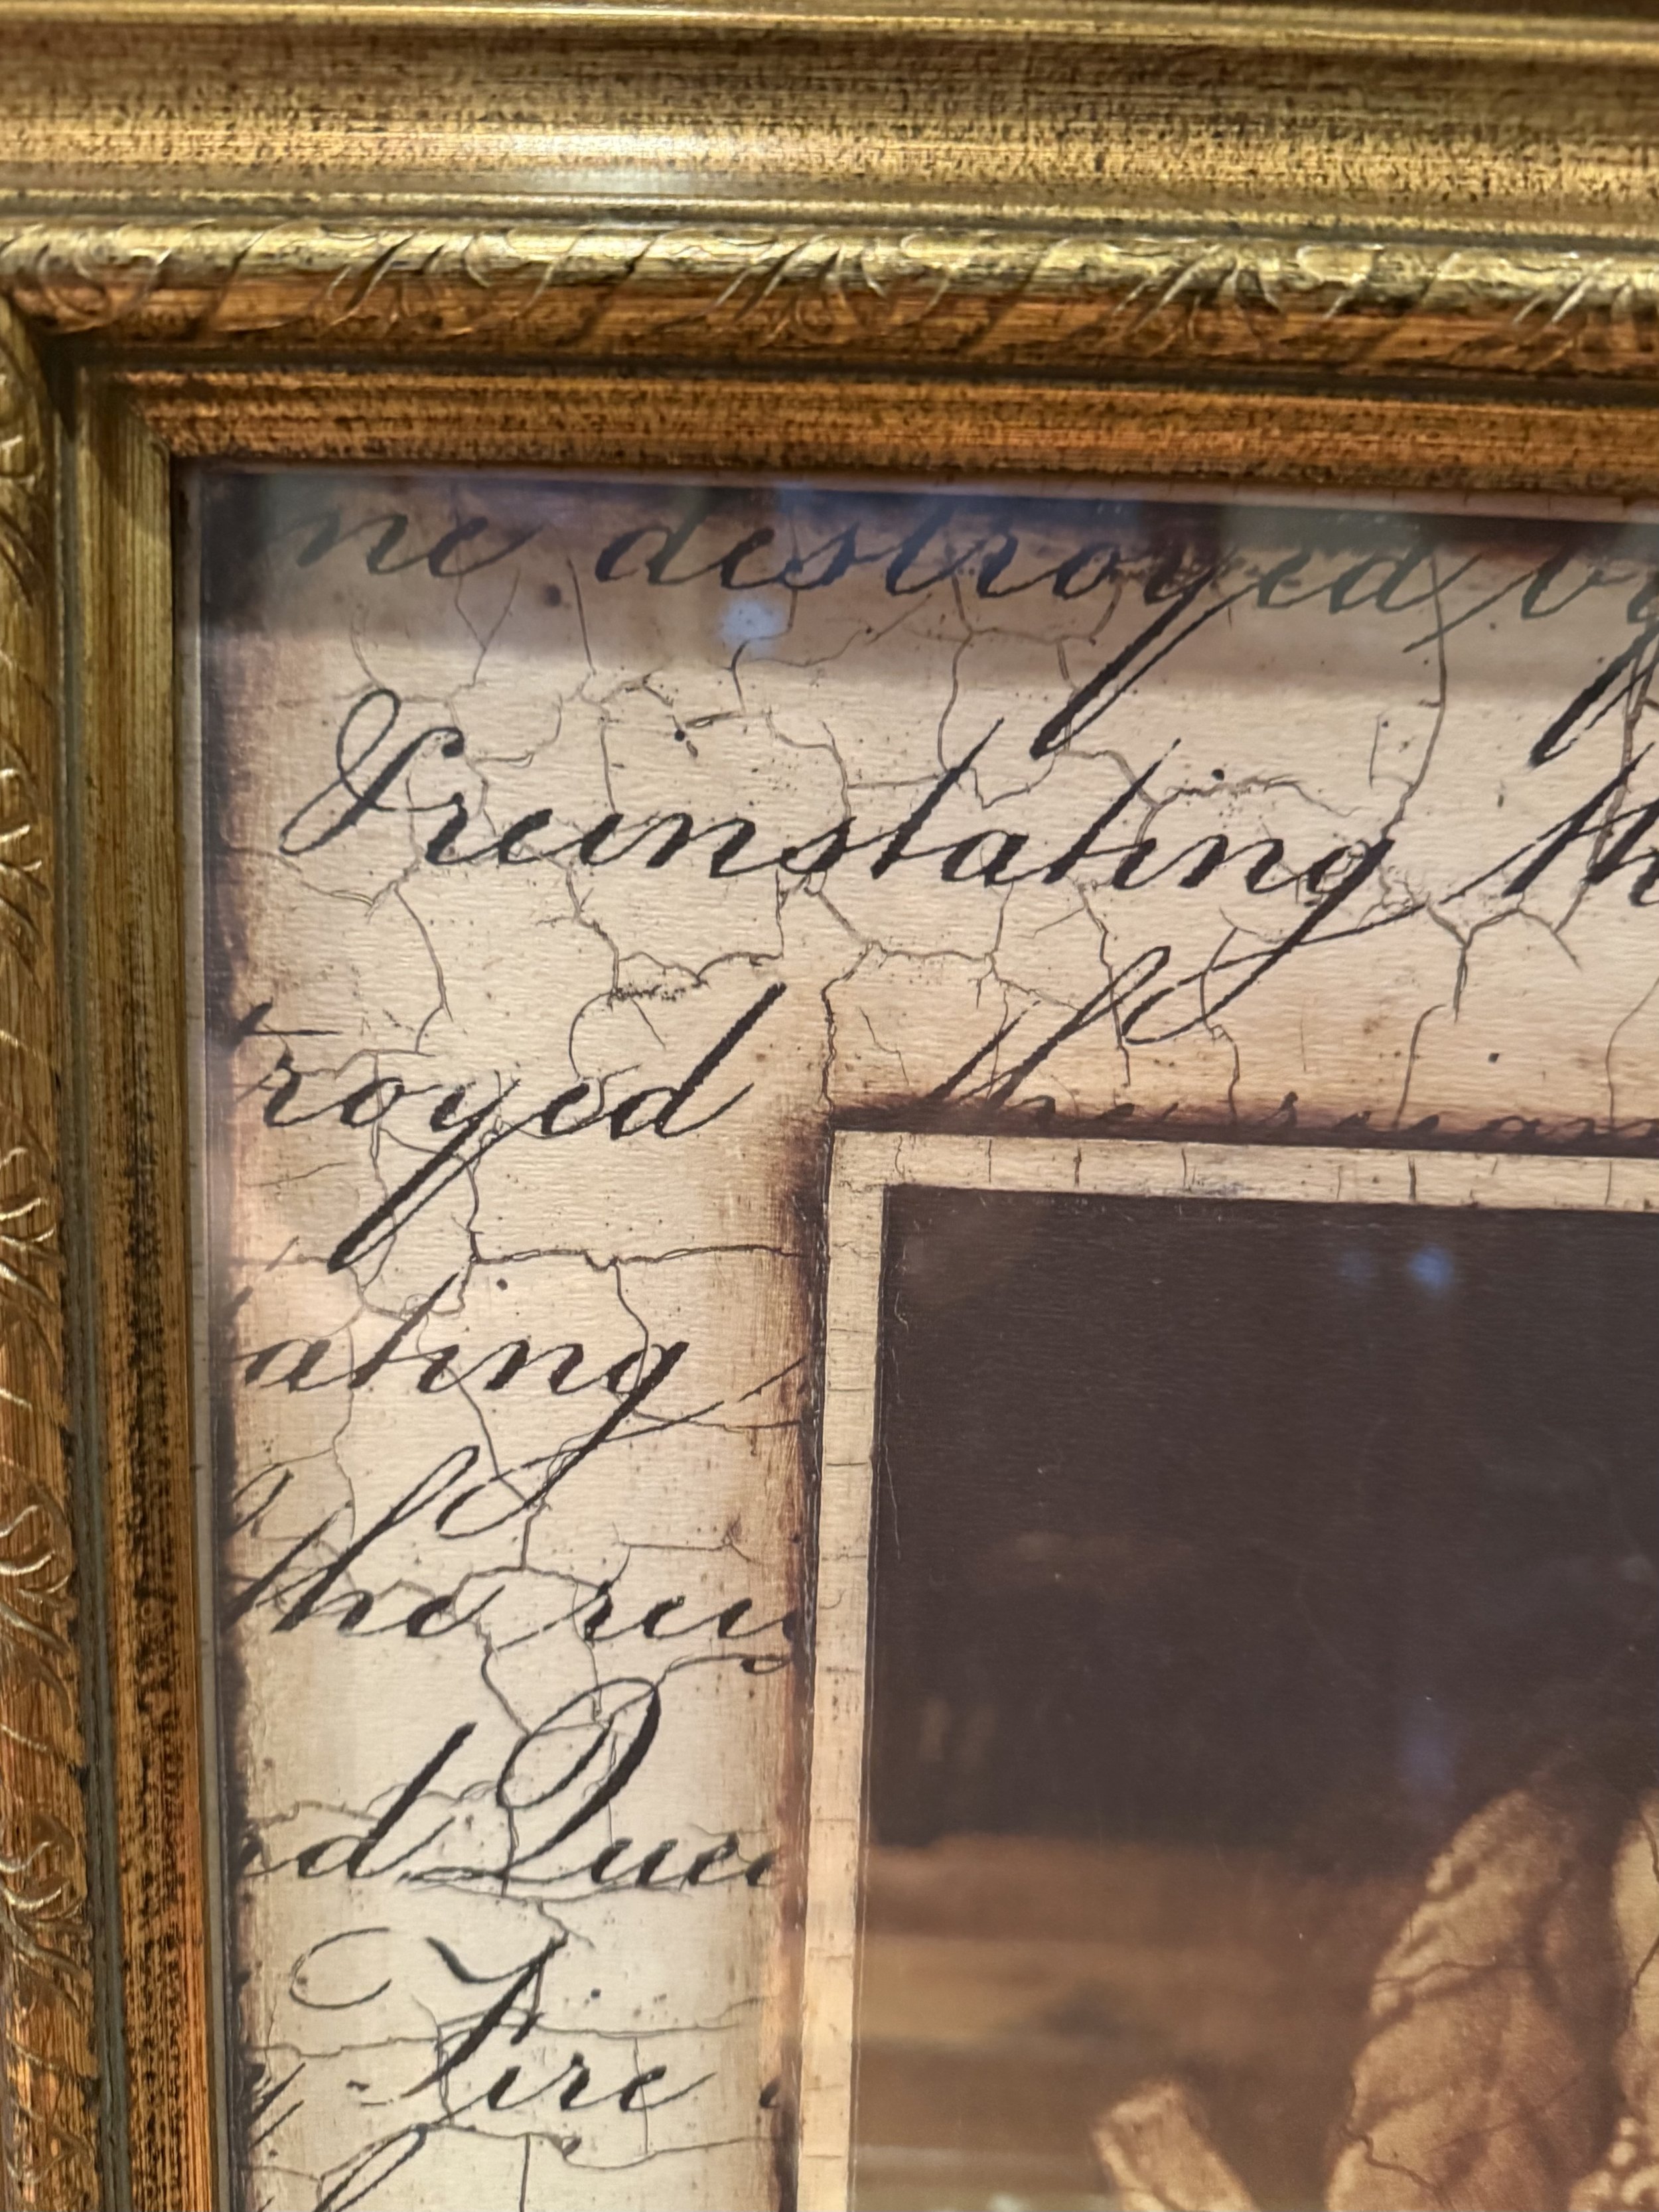 ne destroyed by
Preinstating th
troyed
the
ating
the reig
d Quee
Fire